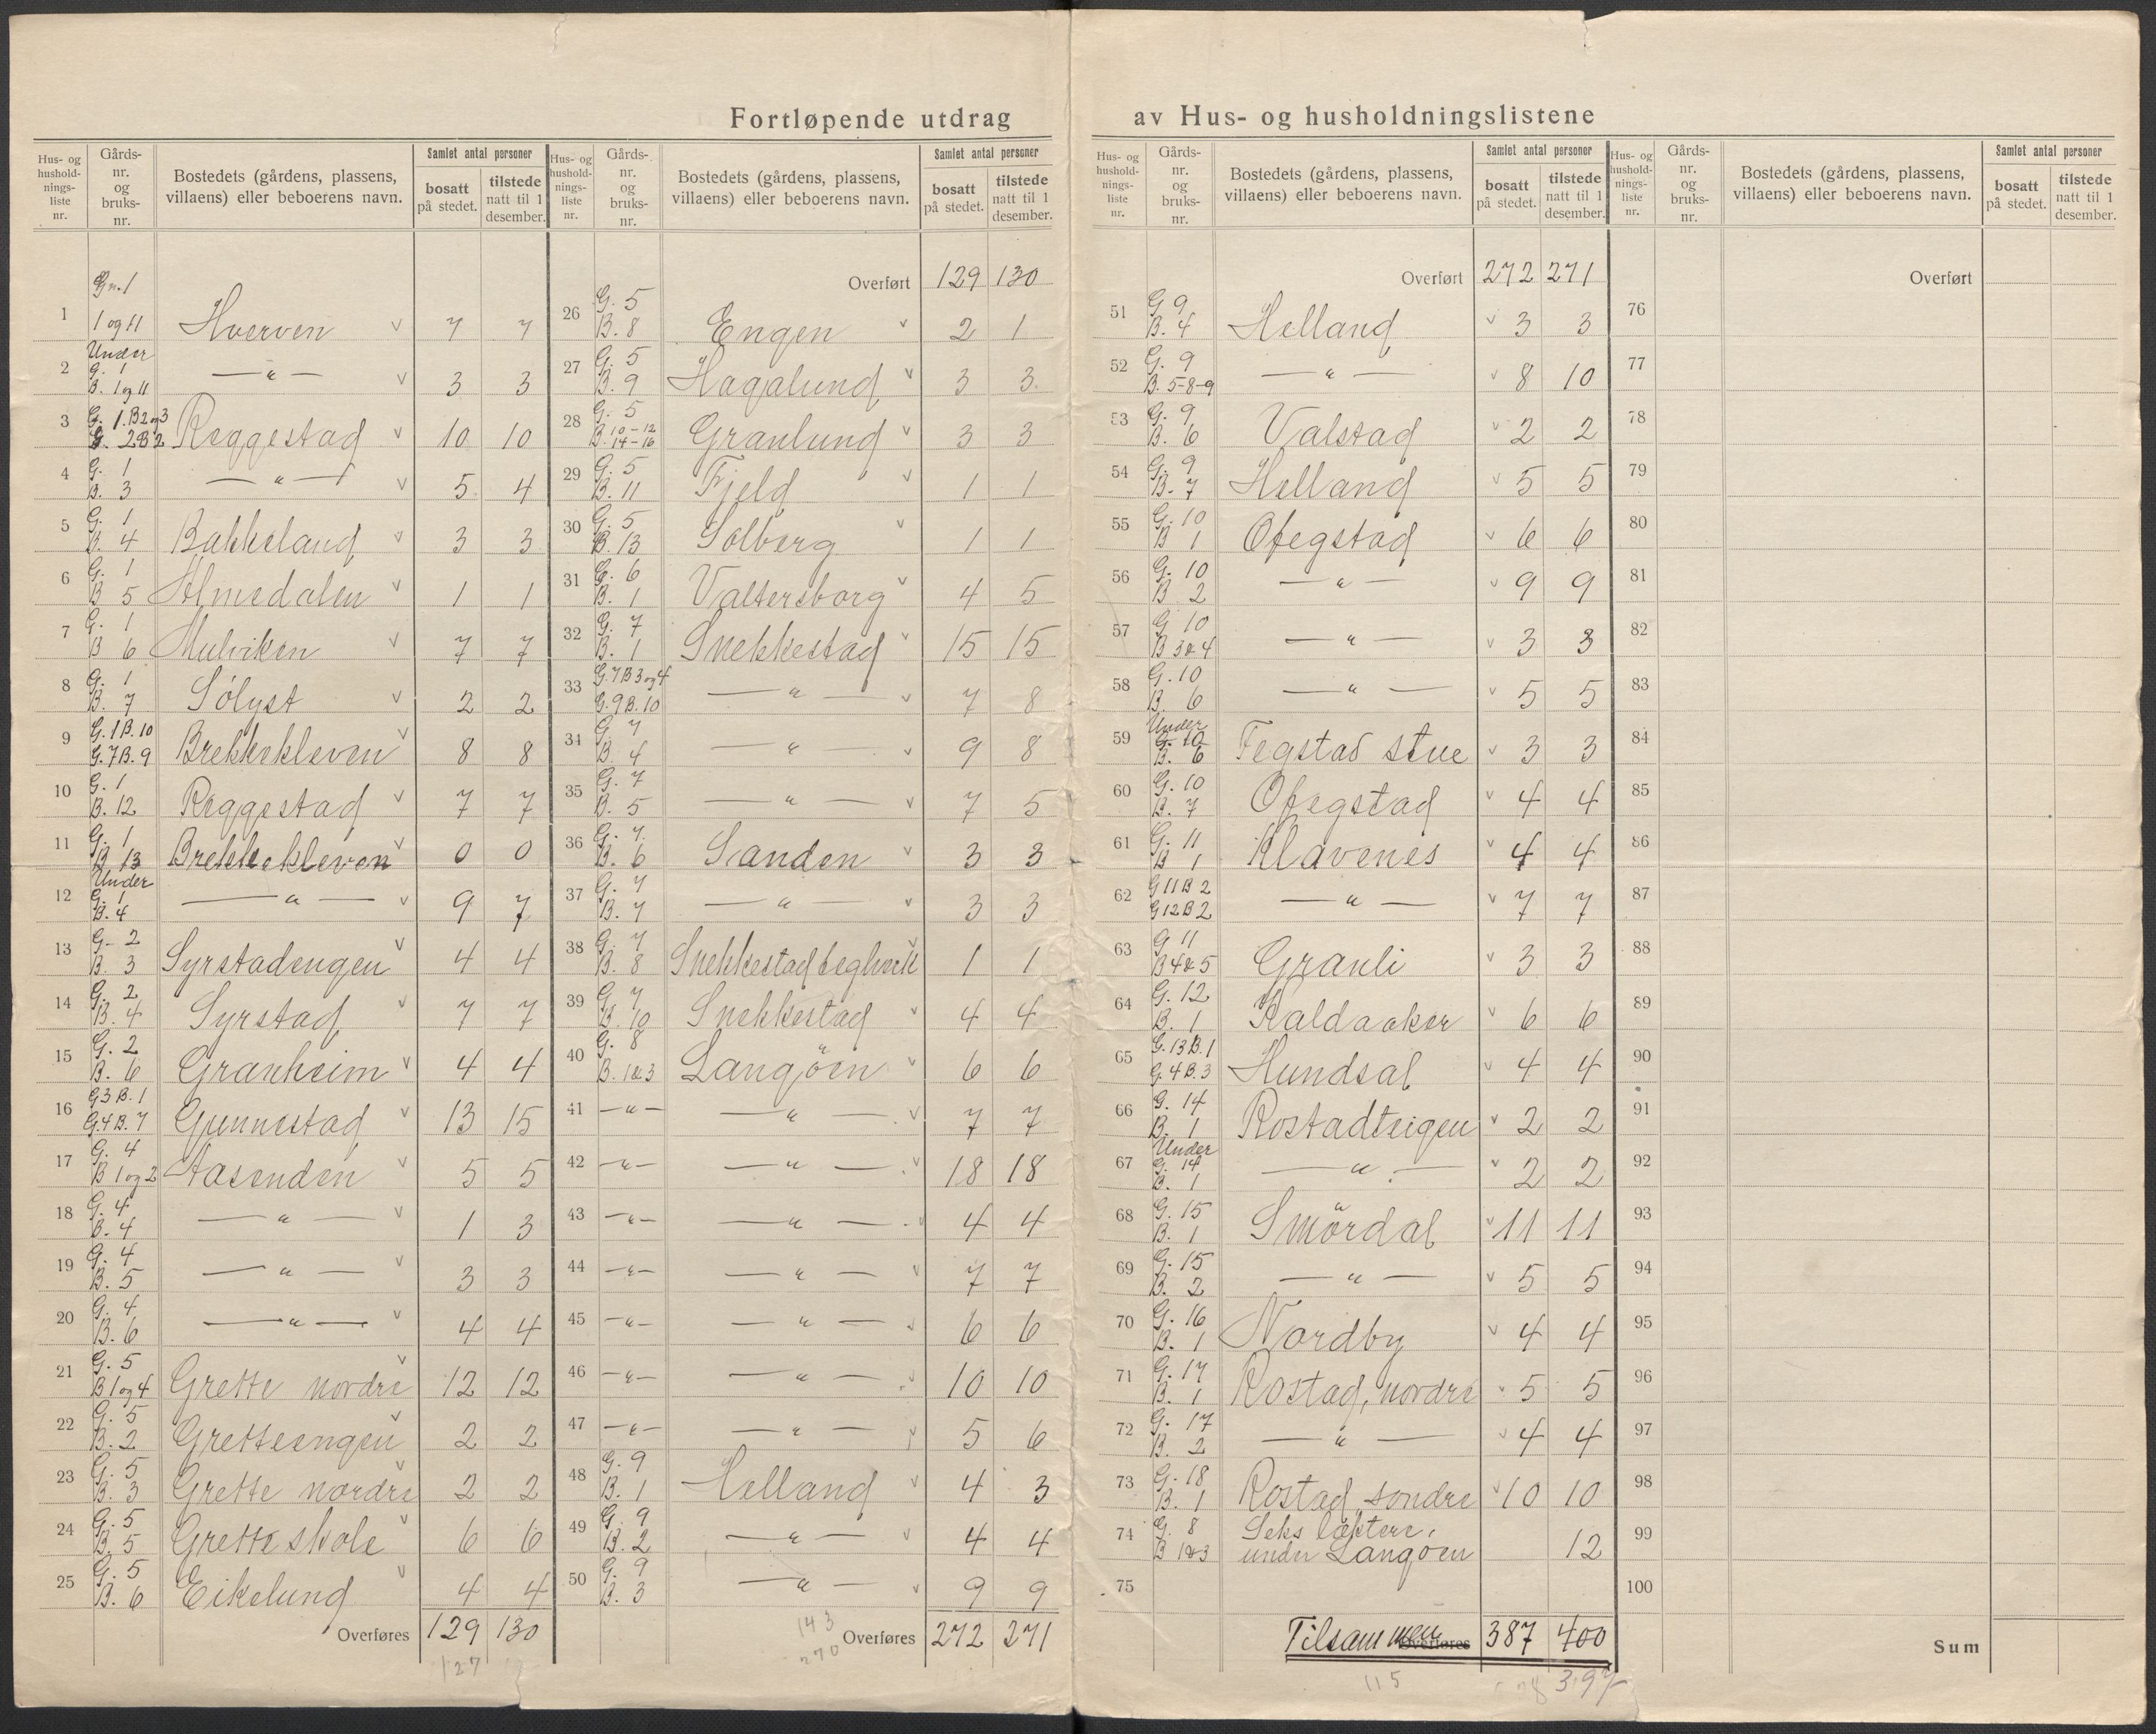 Fortløpende utdrag av Hus- og husholdningslistene
Hus- og husholdnings-liste nr. | Gårds-nr. og bruks-nr. | Bostedets (gårdens, plassens, villaens) eller beboerens navn. | Samlet antal personer | bosatt på stedet. | tilstede natt til 1 desember.
1 | Gn. 1 1 og 11 | Hverven v | 7 | 7
2 | Under G. 1 B. 1 og 11 | — " — v | 3 | 3
3 | G. 1. B2 og 3 G. 2 B 2 | Reggestad v | 10 | 10
4 | G. 1 B. 3 | — " — v | 5 | 4
5 | G. 1 B. 4 | Bakkeland v | 3 | 3
6 | G. 1 B 5 | Almedalen v | 1 | 1
7 | G. 1 B 6 | Mulviken v | 7 | 7
8 | G. 1 B. 7 | Sólyst v | 2 | 2
9 | G. 1 B. 10 G. 7 B. 9 | Brekkekleven v | 8 | 8
10 | G. 1 B. 12 | Reggestad v | 7 | 7
11 | G. 1 B 13 | Brekkekleven v | 0 | 0
12 | Under G. 1 B. 4 | — " — v | 9 | 7
13 | G- 2 B. 3 | Syrstadengen v | 4 | 4
14 | G. 2 B. 4 | Syrstad v | 7 | 7
15 | G. 2 B. 6 | Granheim v | 4 | 4
16 | G 3 B. 1 G. 4 B. 7 | Gunnestad v | 13 | 15
17 | G. 4 B 1 og 2 | Aasenden v | 5 | 5
18 | G. 4 B. 4 | — " — v | 1 | 3
19 | G. 4 B. 5 | — " — v | 3 | 3
20 | G. 4 B. 6 | — " — v | 4 | 4
21 | G. 5 B 1 og 4 | Grette nordre v | 12 | 12
22 | G. 5 B. 2 | Gretteengen v | 2 | 2
23 | G. 5 B. 3 | Grette nordre v | 2 | 2
24 | G. 5 B. 5 | Grette skole v | 6 | 6
25 | G. 5 B. 6 | Eikelund v | 4 | 4
Overføres | 129 | 130
127
Hus- og husholdnings-liste nr. | Gårds-nr. og bruks-nr. | Bostedets (gårdens, plassens, villaens) eller beboerens navn. | Samlet antal personer | bosatt på stedet. | tilstede natt til 1 desember.
Overført | 129 | 130
26 | G. 5 B. 8 | Engen v | 2 | 1
27 | G. 5 B. 9 | Hagalund v | 3 | 3
28 | G. 5 B. 10-12 14-16 | Granlund v | 3 | 3
29 | G. 5 B. 11 | Fjeld v | 1 | 1
30 | G. 5 B. 13 | Solberg v | 1 | 1
31 | G. 6 B. 1 | Valtersborg v | 4 | 5
32 | G. 7 B. 1 | Snekkestad v | 15 | 15
33 | G. 7 B 3 og 4 G. 9 B. 10 | — " — v | 7 | 8
34 | G. 7 B. 4 | — " — v | 9 | 8
35 | G. 7 B. 5 | — " — v | 7 | 5
36 | G. 7. B. 6 | Sanden v | 3 | 3
37 | G. 7 B. 7 | — " — v | 3 | 3
38 | G. 7 B. 8 | Snekkestad teglverk v | 1 | 1
39 | G. 7 B. 10 | Snekkestad v | 4 | 4
40 | G. 8 B. 1&3 | Langöen v | 6 | 6
41 | — " — | — " — v | 7 | 7
42 | — " — | — " — v | 18 | 18
43 | — " — | — " — v | 4 | 4
44 | — " — | — " — v | 7 | 7
45 | — " — | — " — v | 6 | 6
46 | — " — | — " — v | 10 | 10
47 | — " — | — " — v | 5 | 6
48 | G. 9 B. 1 | Helland v | 4 | 3
49 | G. 9 B. 2 | — " — v | 4 | 4
50 | G. 9 B. 3 | — " — v | 9 | 9
Overføres | 272 | 271
143
270
Hus- og husholdnings-liste nr. | Gårds-nr. og bruks-nr. | Bostedets (gårdens, plassens, villaens) eller beboerens navn. | Samlet antal personer | bosatt på stedet. | tilstede natt til 1 desember.
Overført | 272 | 271
51 | G 9 B. 4 | Helland v | 3 | 3
52 | G. 9 B. 5-8-9 | — " — v | 8 | 10
53 | G. 9 B. 6 | Valstad v | 2 | 2
54 | G. 9 B. 7 | Helland v | 5 | 5
55 | G. 10 B 1 | Ofegstad v | 6 | 6
56 | G. 10 B 2 | — " — v | 9 | 9
57 | G 10 B 3&4 | — " — v | 3 | 3
58 | G. 10 B. 6 | — " — v | 5 | 5
59 | Under G. 10 B. 6 | Fegstad stue v | 3 | 3
60 | G. 10 B. 7 | Ofegstad v | 4 | 4
61 | G. 11 B 1 | Klavenes v | 4 | 4
62 | G 11 B 2 G 12 B 2 | — " — v | 7 | 7
63 | G 11 B 4&5 | Granli v | 3 | 3
64 | G. 12 B. 1 | Kaldaaker v | 6 | 6
65 | G. 13 B. 1 G. 4 B. 3 | Hundsal v | 4 | 4
66 | G. 14 B. 1 | Rostadteigen v | 2 | 2
67 | Under G. 14 B. 1 | — " — v | 2 | 2
68 | G. 15 B. 1 | Smördal v | 11 | 11
69 | G. 15 B. 2 | — " — v | 5 | 5
70 | G. 16 B. 1 | Nordby v | 4 | 4
71 | G. 17 B. 1 | Rostad, nordre v | 5 | 5
72 | G. 17 B. 2 | — " — v | 4 | 4
73 | G. 18 B. 1 | Rostad, søndre v | 10 | 10
74 | G. 8 B 1&3 | Seks læktere, under Langøen | 12
75
Tilsammen Overføres | 387 | 400
115
397
Hus- og husholdnings-liste nr. | Gårds-nr. og bruks-nr. | Bostedets (gårdens, plassens, villaens) eller beboerens navn. | Samlet antal personer | bosatt på stedet. | tilstede natt til 1 desember.
Overført
76
77
78
79
80
81
82
83
84
85
86
87
88
89
90
91
92
93
94
95
96
97
98
99
100
Sum